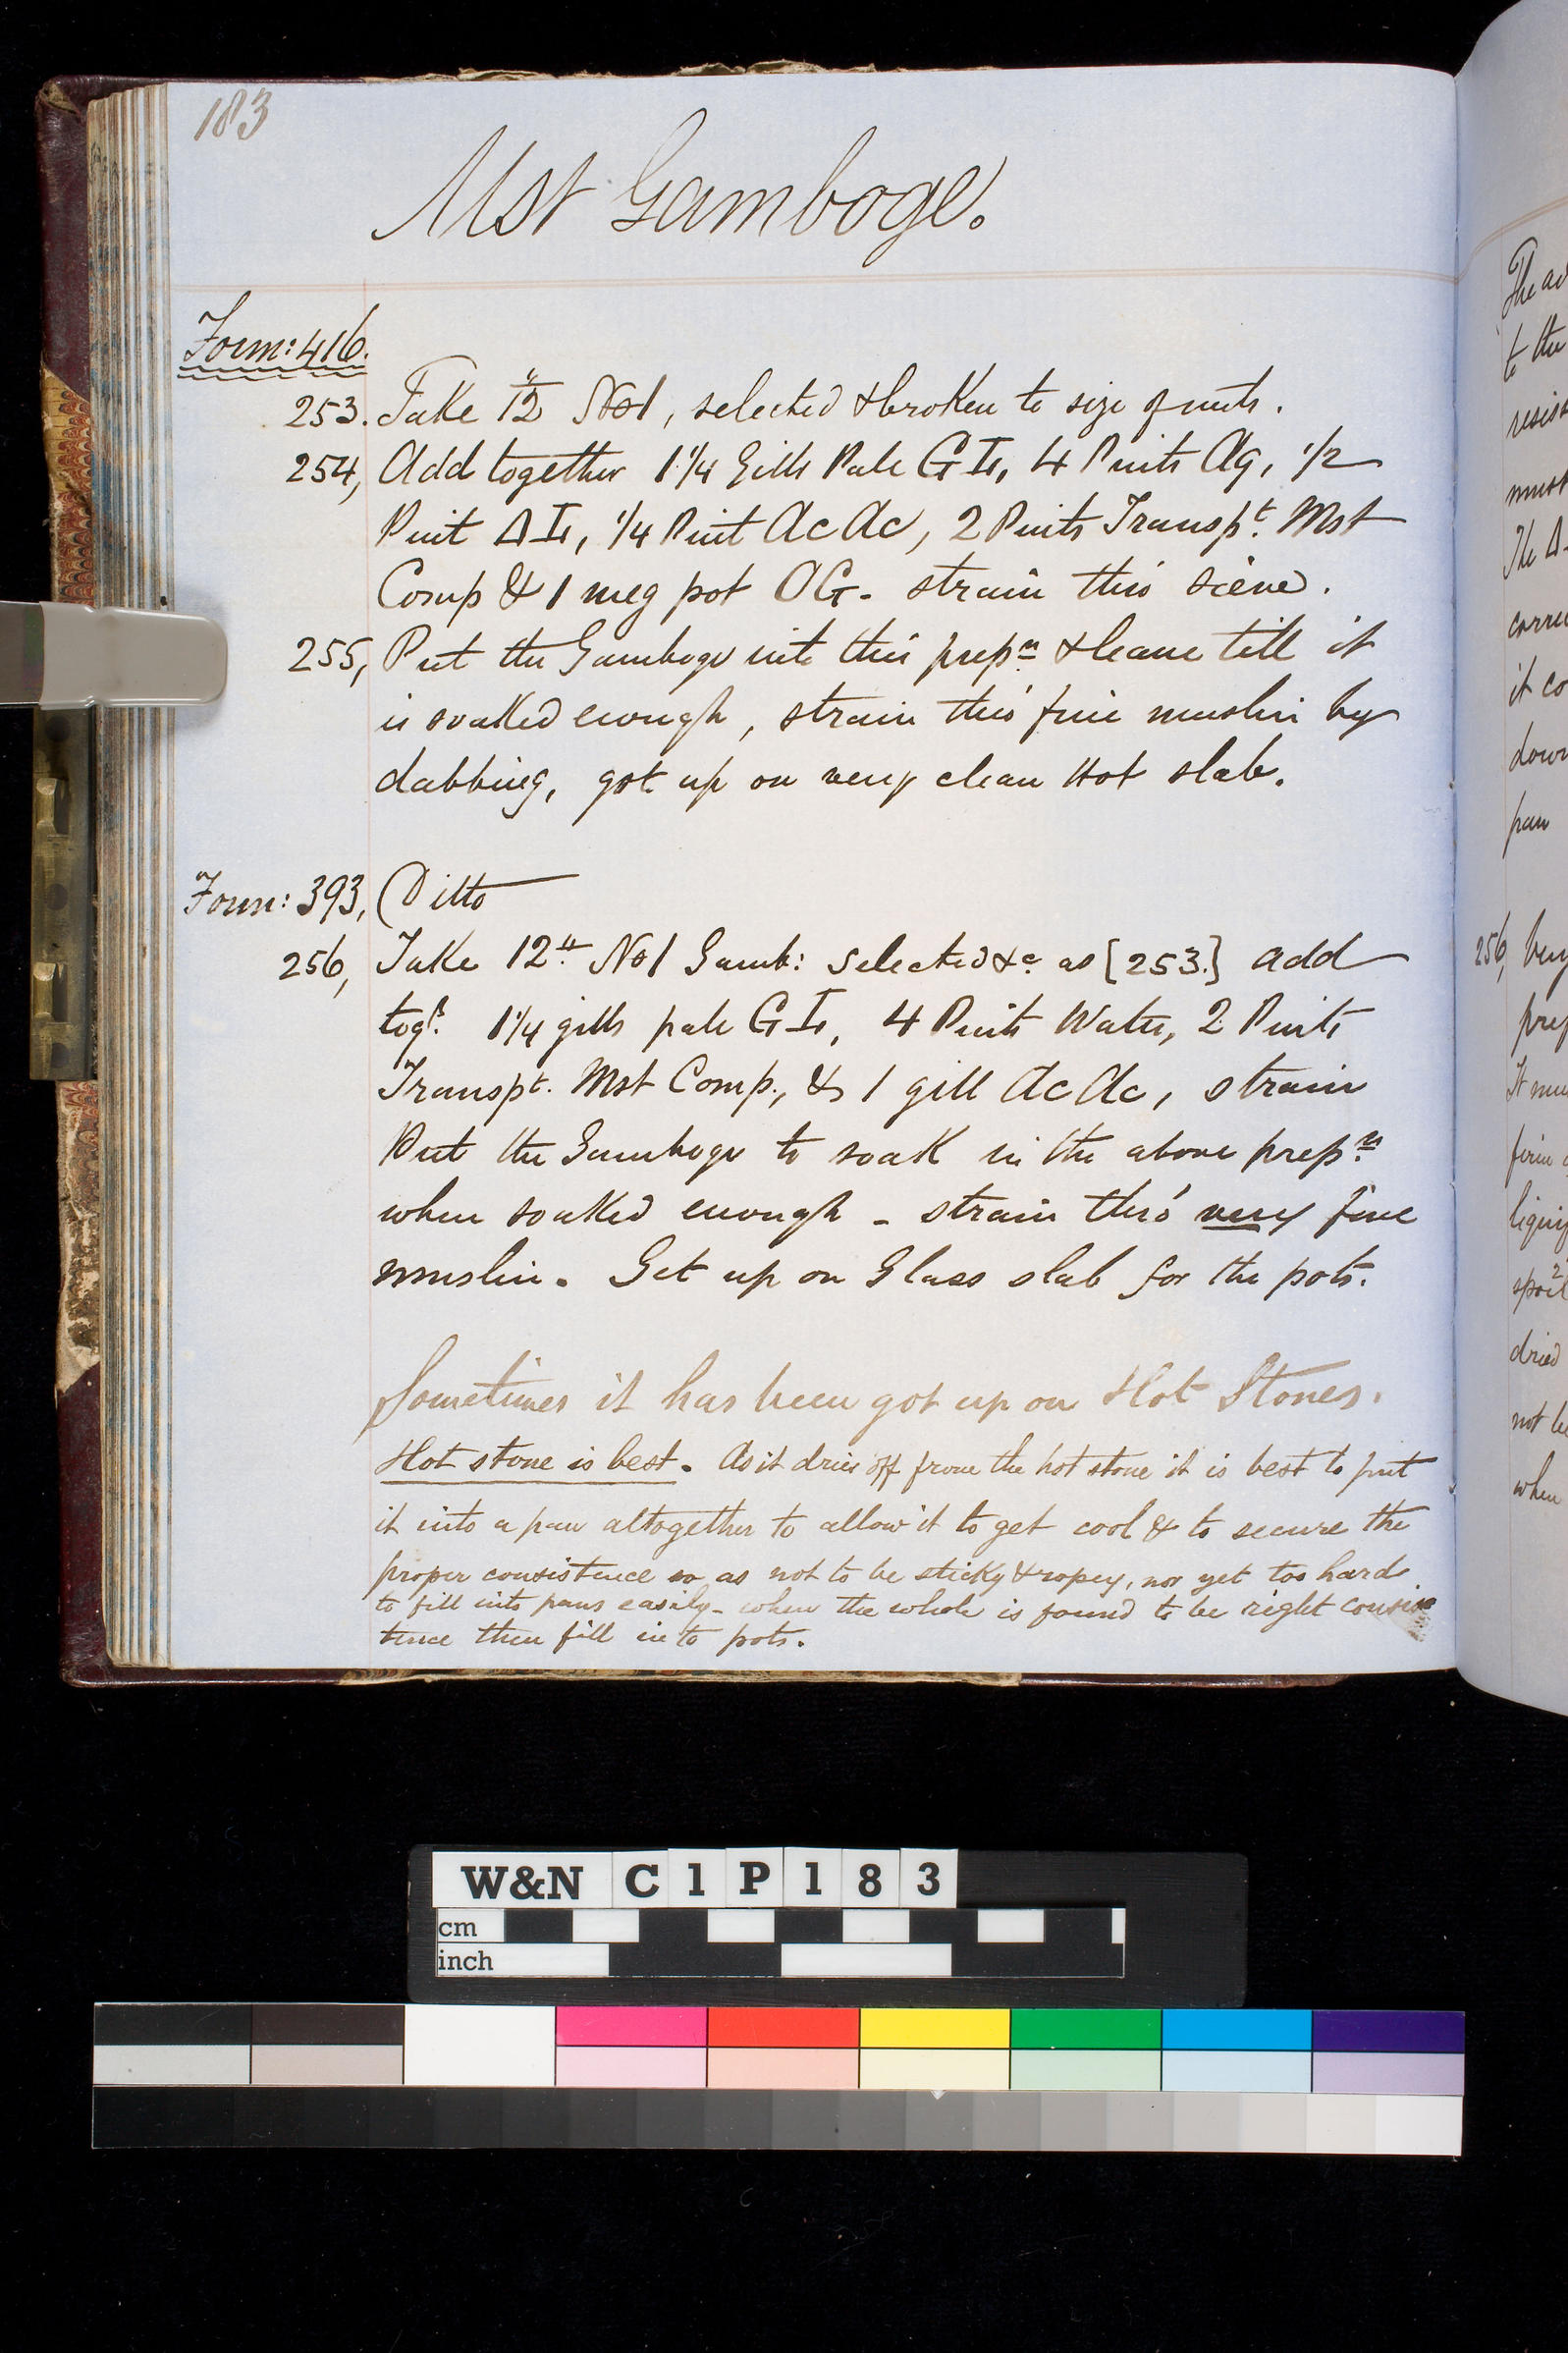 183
Mst Gamboge.
Form: 416.
253. Take 12 No1, selected & broken to size of nuts.
254, Add together 1 1/4 Gills Pale G I, 4 Pints Aq, 1/2
Pint Δ I, 1/4 Pint Ac Ac, 2 Pints Transpt. Mst
Comp & 1 meg pot OG - strain thro' sieve.
255, Put the Gamboge into this prepn & leave till it
is soaked enough, strain thro' fine muslin by
dabbing, got up on very clean Hot slab.
Form: 393, Ditto
256, Take 12 No1 Gamb: selected &c as [253.] add
togr. 1 1/4 gills pale G I, 4 Pints Water, 2 Pints
Transpt. Mst Comp., & 1 gill Ac Ac, strain
Put the Gamboge to soak in the above prepn
when soaked enough - strain thro' very fine
muslin. Get up on Glass slab for the pots.
Sometimes it has been got up on Hot Stones.
Hot stone is best. As it dries off from the hot stone it is best to put
it into a pan altogether to allow it to get cool & to secure the
proper consistence so as not to be sticky & ropey, nor yet too hard
to fill into pans easily - when the whole is found to be right consis
tence then fill into pots.
The
to the
resis
must
The Δ
corre
it co
down
pan
256, Very
prep
It mu
firm
liquif
spoil
dried
not be
when
W&N C1P183
cm
inch